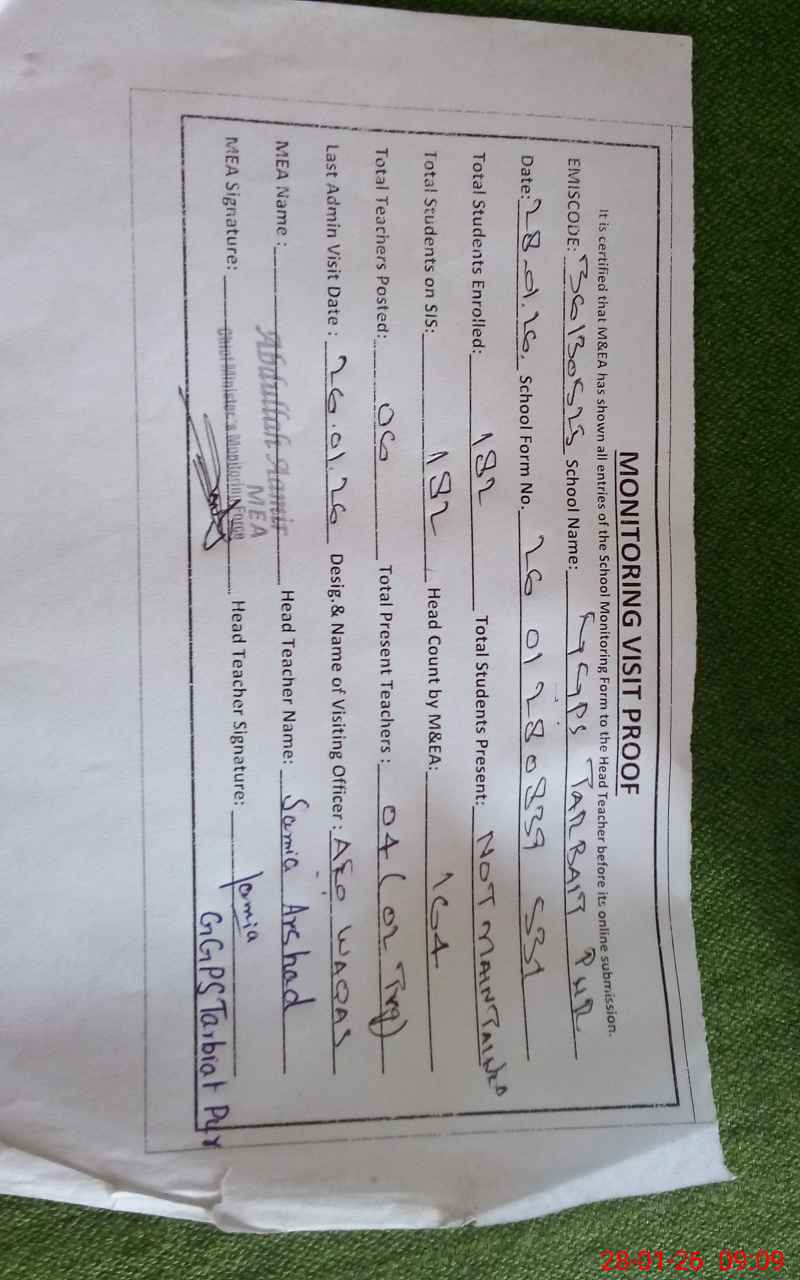 MONITORING VISIT PROOF
It is certified that M&EA has shown all entries of the School Monitoring Form to the Head Teacher before its online submission.
EMISCODE: 36130525 School Name: GGPS TARBAIT PUR
Date: 28.01.26. School Form No. 26 01 28 0839 531
Total Students Enrolled: 182 Total Students Present: NOT MAINTAINED
Total Students on SIS: 182 Head Count by M&EA: 164
Total Teachers Posted: 06 Total Present Teachers: 04 (02 Trg)
Last Admin Visit Date : 26.01.26 Desig.& Name of Visiting Officer : AEO WAQAS
MEA Name : Abdullah Aamir Head Teacher Name: Samia Arshad
MEA
Chief Minister's Monitoring Force
MEA Signature: Head Teacher Signature: Samia
GGPS Tarbiat Pur
28-01-26 09:09